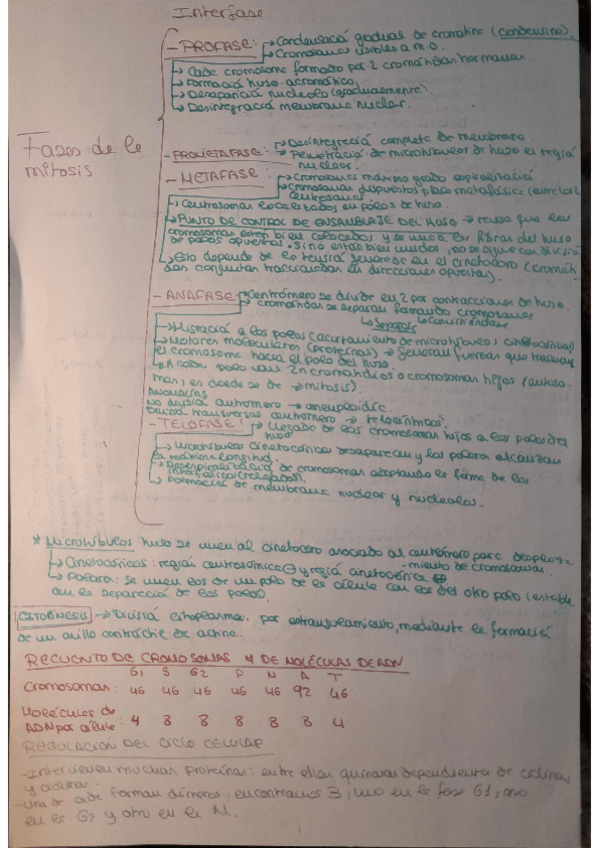 Interfase
Fases de la
mitosis
- PROFASE: → Condensació gradual de cromatina (condensina).
→ Cromosomas visibles a m.o.
→ Cada cromosoma formado por 2 cromátidas hermanas.
→ Formació huso acromático.
→ Desaparició nucleolo (gradualmente).
→ Desintegració membrana nuclear.
- PROMETAFASE: → Desintegració completa de membrana.
→ Penetració de microtúbulos de huso en regió nuclear.
- METAFASE: → Cromosomas máximo grado espiralizació
→ Cromosomas dispuestos placa metafásica (entre los 2 centrosomas)
→ Centrosomas localizados en polos de huso.
→ PUNTO DE CONTROL DE ENSAMBLAJE DEL HUSO → revisa que los
cromosomas estén bien colocados y se unen a las fibras del huso
de polos opuestos. Si no están bien unidos, no se sigue con divisió
→ Esto depende de la tensió generada en el cinetocoro (cromáti
das conjuntas traccionadas en direcciones opuestas).
- ANAFASE: → Centrómero se divide en 2 por contracciones de huso.
→ cromátidas se separan formando cromosomas
→ Separasa → Cohesina
→ Migració a los polos (acortamiento de microtúbulos cinetocóricos)
→ Motores moleculares (proteínas) → Generan fuerzas que
el cromosoma hacia el polo del huso.
→ A cada polo van 2n cromátidas o cromosomas hijos (
mas; es donde se da → mitosis).
ANOMALÍAS
NO divisió centrómero → aneuploidía.
Divisió transversas centrómero →
- TELOFASE: → Llegada de los cromosomas hijos a los polos del huso
→ Microtúbulos cinetocóricos desaparecen y los polares alcanzan
la máxima longitud.
→ Desespiralizació de cromosomas adoptando la forma de los
interfásicos (relajados).
→ Formació de membrana nuclear y nucleolos.
* Microtúbulos huso se unen al cinetocoro asociado al centrómero para desplaza-
miento de cromosomas.
→ Cinetocóricos: regió centrosómica ⊖ y regió cinetocórica ⊕
→ Polares: se unen los de un polo de la célula con los del otro polo (estable
cen la separació de los polos)
CITOCINESIS → Divisió citoplasma. por estrangulamiento, mediante la formació
de un anillo contráctil de actina.
RECUENTO DE CROMOSOMAS Y DE MOLÉCULAS DE ADN
G1 S G2 P M A T
Cromosomas: 46 46 46 46 46 92 46
Moléculas de
ADN por célula: 4 8 8 8 8 8 4
REGULACIÓN DEL CICLO CELULAR
- Intervienen muchas proteínas: entre ellas quinasas dependientes de ciclinas
y ciclinas.
- Una de cada forman dímeros, encontramos 3, uno en la fase G1, otro
en la G2 y otro en la M.